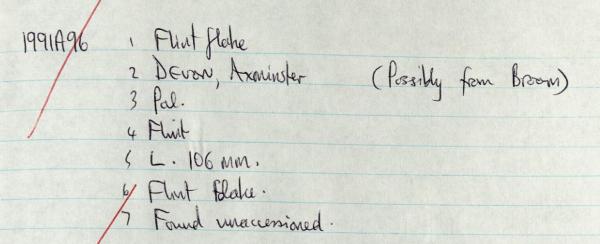 1991A96 1 Flint flake
2 DEVON, Axminster (Possibly from Broom)
3 Pal.
4 Flint
5 L. 106 mm.
6 Flint flake.
7 Found unaccessioned.